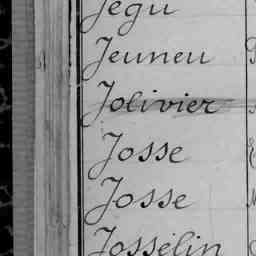 Jégu
Jeuneu
Jolivier
Josse
Josse
Josselin